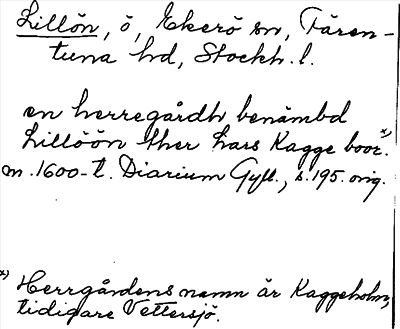 Lillön, ö, Ekerö sn, Fären-
tuna hd, Stockh. l.
en herregårdh benämbd
Lillöön ther Lars Kagge boor.*)
m. 1600-t. Diarium Gyll., s. 195. orig.
*) Herrgårdens namn är Kaggeholm,
tidigare Vettersjö.